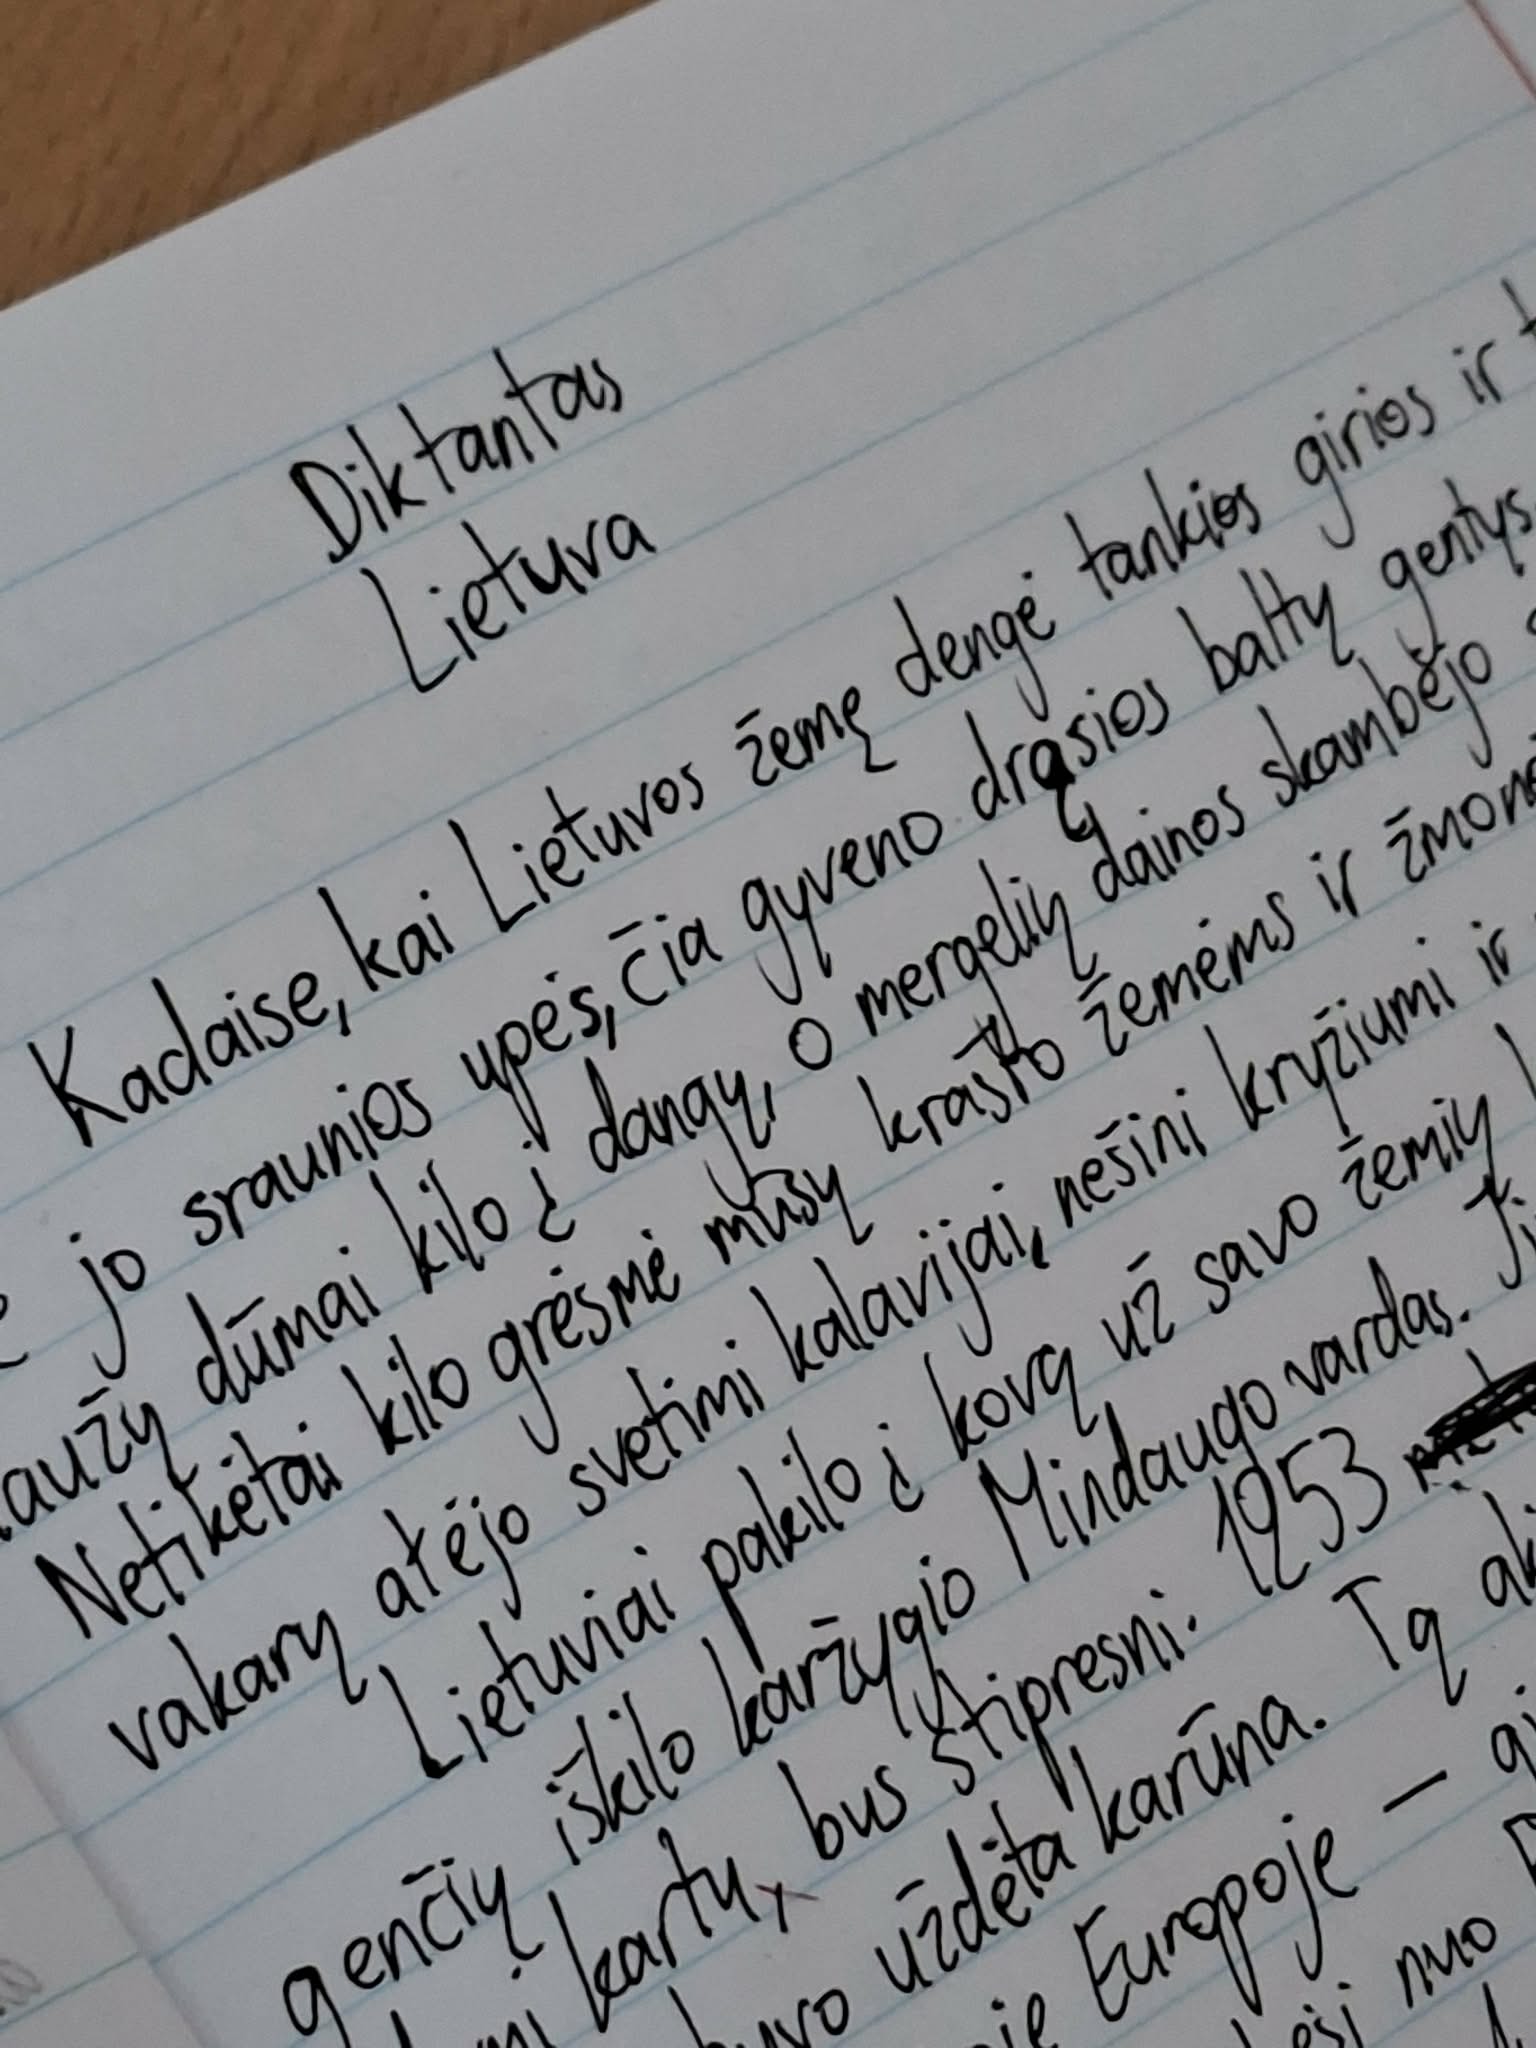 Diktantas
Lietuva
Kadaise, kai Lietuvos žemę dengė tankios girios ir
jo sraunios upės, čia gyveno drąsios baltų gentys
dūmai kilo į dangų, o mergelių dainos skambėjo
Netikėtai kilo grėsmė mūsų krašto žemėms ir
vakarų atėjo svetimi kalavijai, nešini kryžiumi ir
Lietuviai pakilo į kovą už savo žemių
genčių iškilo karžygio Mindaugo vardas.
kartu, bus stipresni. 1253
uždėta karūna. Tą
Europoje –
nuo